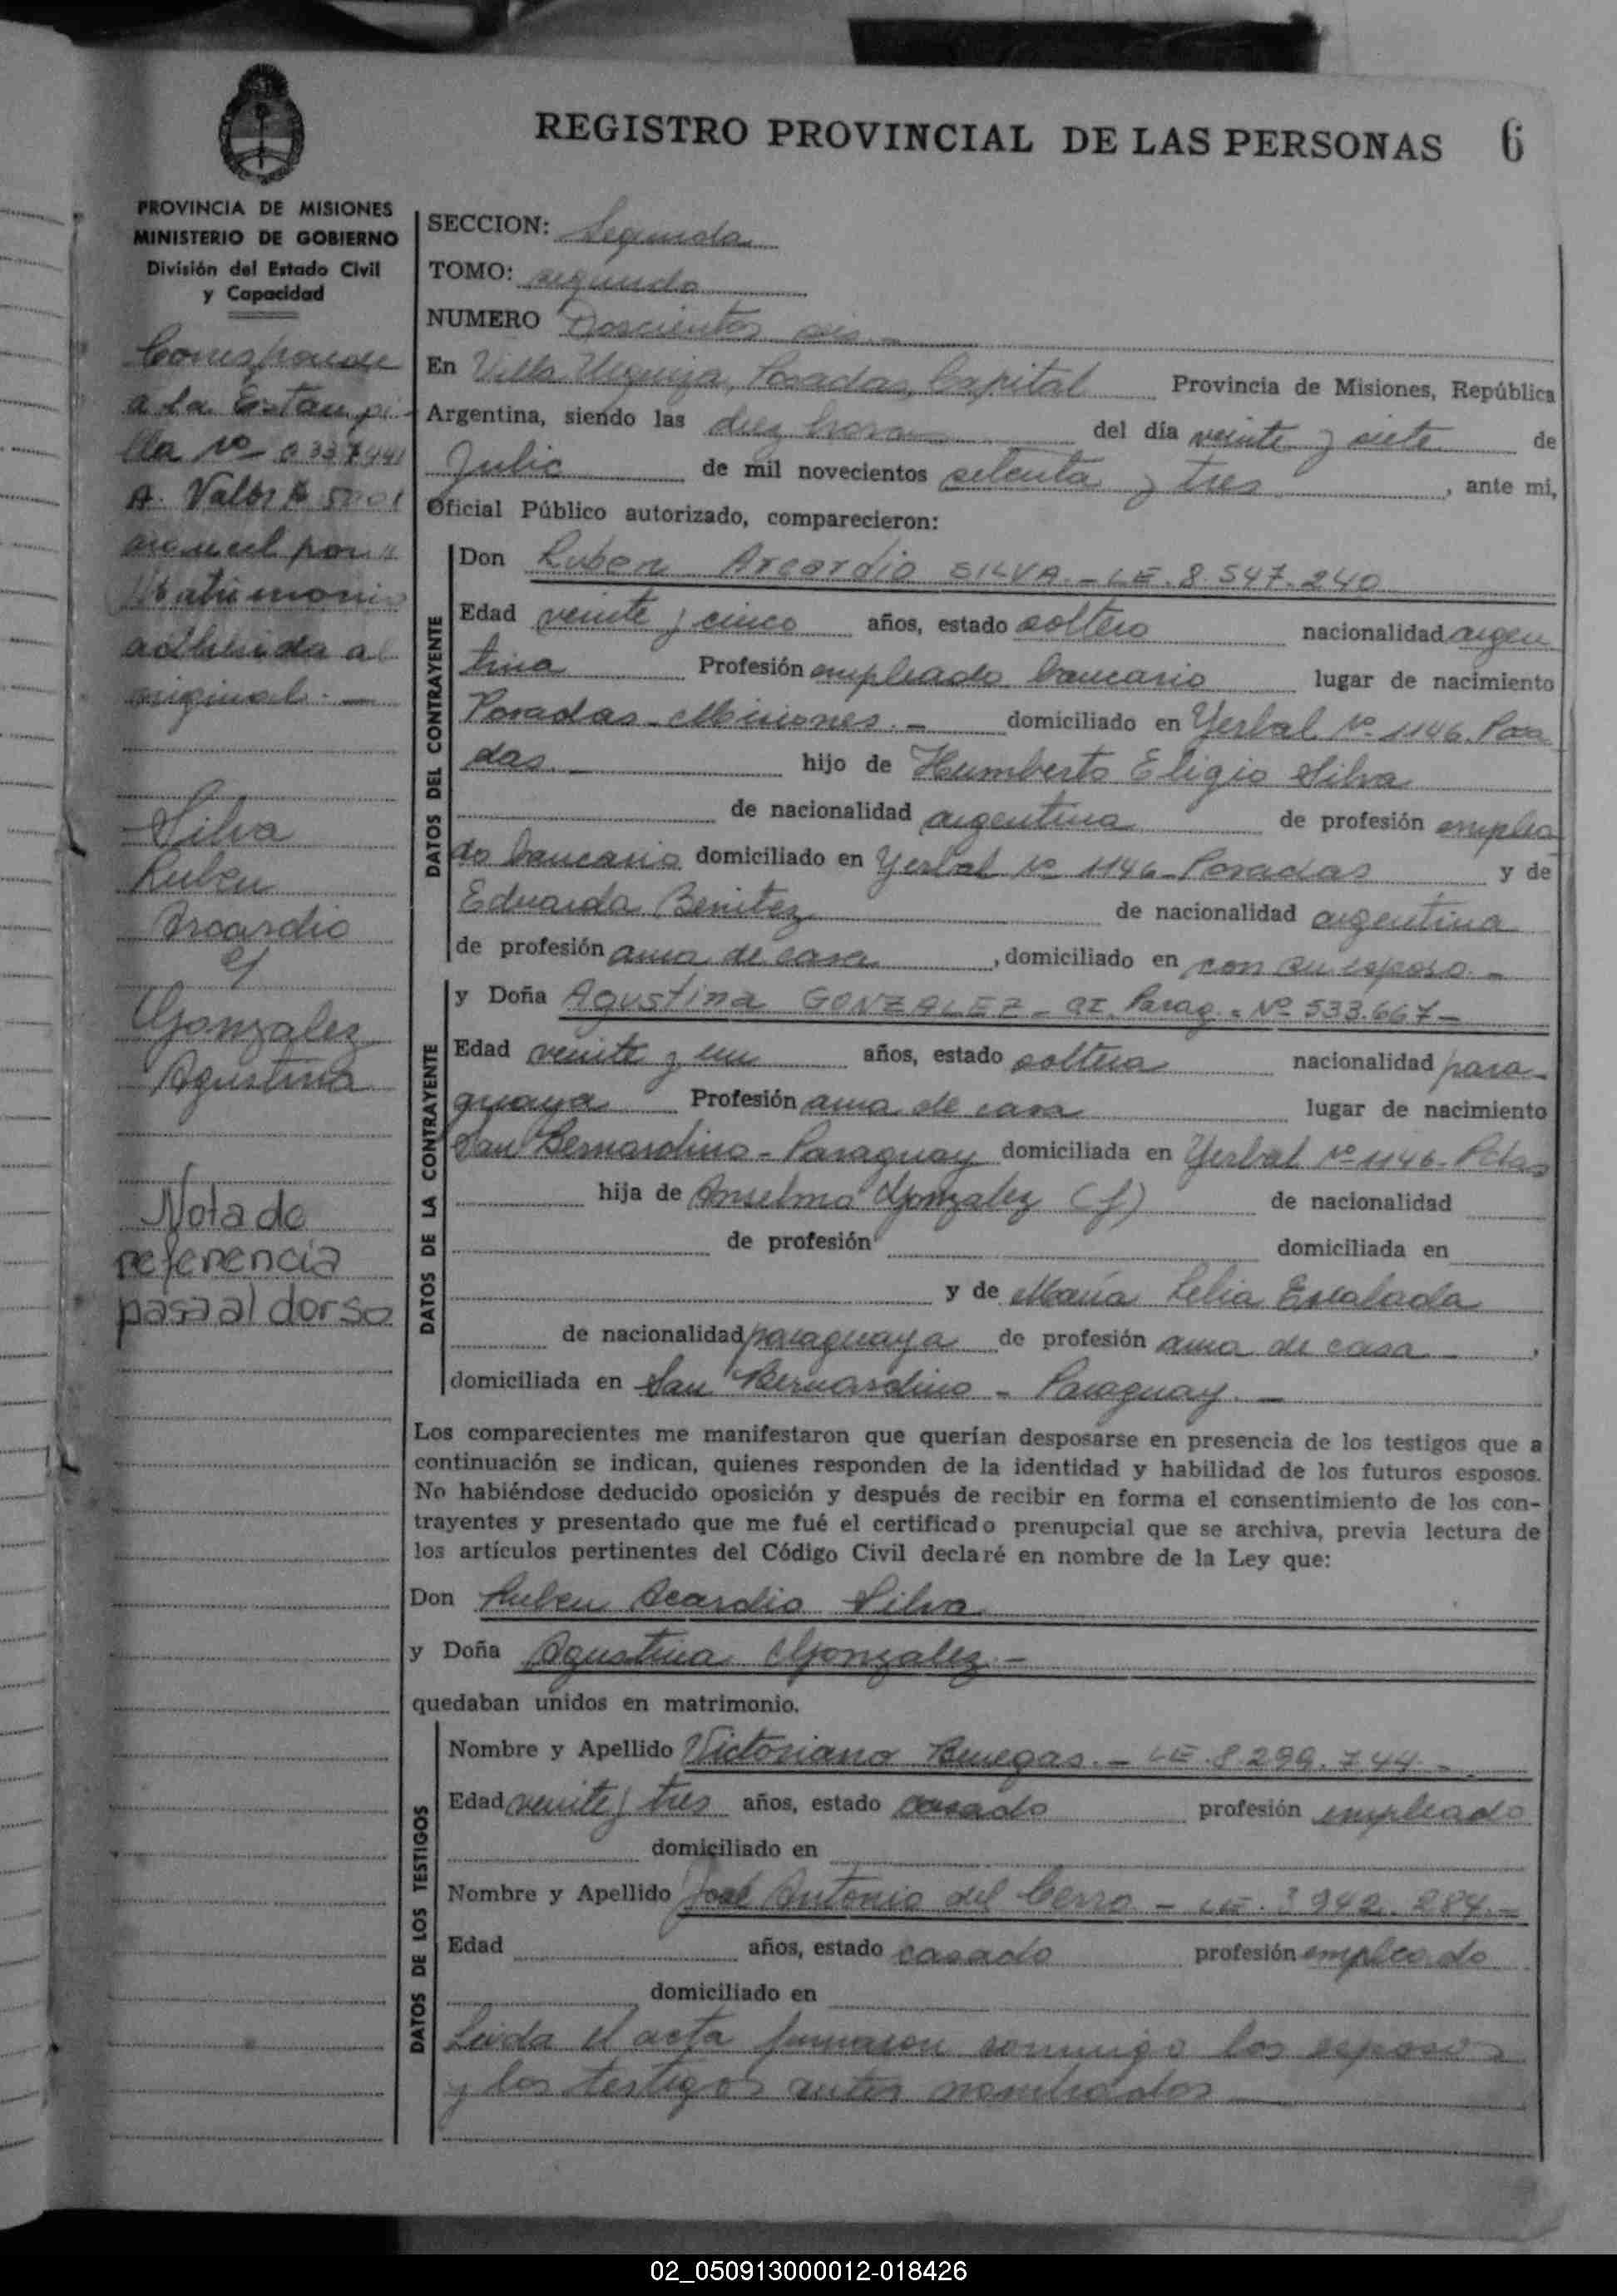 REGISTRO PROVINCIAL DE LAS PERSONAS 6
PROVINCIA DE MISIONES
MINISTERIO DE GOBIERNO
División del Estado Civil
y Capacidad
Corresponde
a la Estampi-
lla Nº 0337441
A. Valor $
arancel por
Matrimonio
adherida al
original. —
Silva
Ruben
Arcardio
c/
Gonzalez
Agustina
Nota de
referencia
pasa al dorso
SECCION: Segunda
TOMO: segundo
NUMERO Doscientos seis. —
En Villa Urquiza, Posadas, Capital Provincia de Misiones, República
Argentina, siendo las diez horas del día veinte y siete de
Julio de mil novecientos setenta y tres , ante mi,
Oficial Público autorizado, comparecieron:
DATOS DEL CONTRAYENTE
Don Ruben Arcardio SILVA. - LE. 8.547.240
Edad veinte y cinco años, estado soltero nacionalidad argen
tina Profesión empleado bancario lugar de nacimiento
Posadas - Misiones. - domiciliado en Yerbal Nº 1146. Posa
das. — hijo de Humberto Eligio Silva
de nacionalidad argentina de profesión emplea
do bancario domiciliado en Yerbal Nº 1146 - Posadas y de
Eduarda Benitez de nacionalidad argentina
de profesión ama de casa , domiciliado en con su esposo. -
DATOS DE LA CONTRAYENTE
y Doña Agustina GONZALEZ - CI. Parag. Nº 533.667 -
Edad veinte y un años, estado soltera nacionalidad para-
guaya Profesión ama de casa lugar de nacimiento
San Bernardino - Paraguay domiciliada en Yerbal Nº 1146 - Pdas
hija de Anselmo Gonzalez (f) de nacionalidad
de profesión domiciliada en
y de María Lelia Escalada
de nacionalidad paraguaya de profesión ama de casa - ,
domiciliada en San Bernardino - Paraguay. —
Los comparecientes me manifestaron que querían desposarse en presencia de los testigos que a
continuación se indican, quienes responden de la identidad y habilidad de los futuros esposos.
No habiéndose deducido oposición y después de recibir en forma el consentimiento de los con-
trayentes y presentado que me fué el certificado prenupcial que se archiva, previa lectura de
los artículos pertinentes del Código Civil declaré en nombre de la Ley que:
Don Ruben Acardio Silva
y Doña Agustina Gonzalez -
quedaban unidos en matrimonio.
DATOS DE LOS TESTIGOS
Nombre y Apellido Victoriano Benegas. - LE. 8.299.744. -
Edad veinte y tres años, estado casado profesión empleado
domiciliado en
Nombre y Apellido José Antonio del Cerro - LE. 942.284. -
Edad años, estado casado profesión empleado
domiciliado en
Leida el acta firmaron conmigo los esposos
y los testigos antes nombrados
02_050913000012-018426